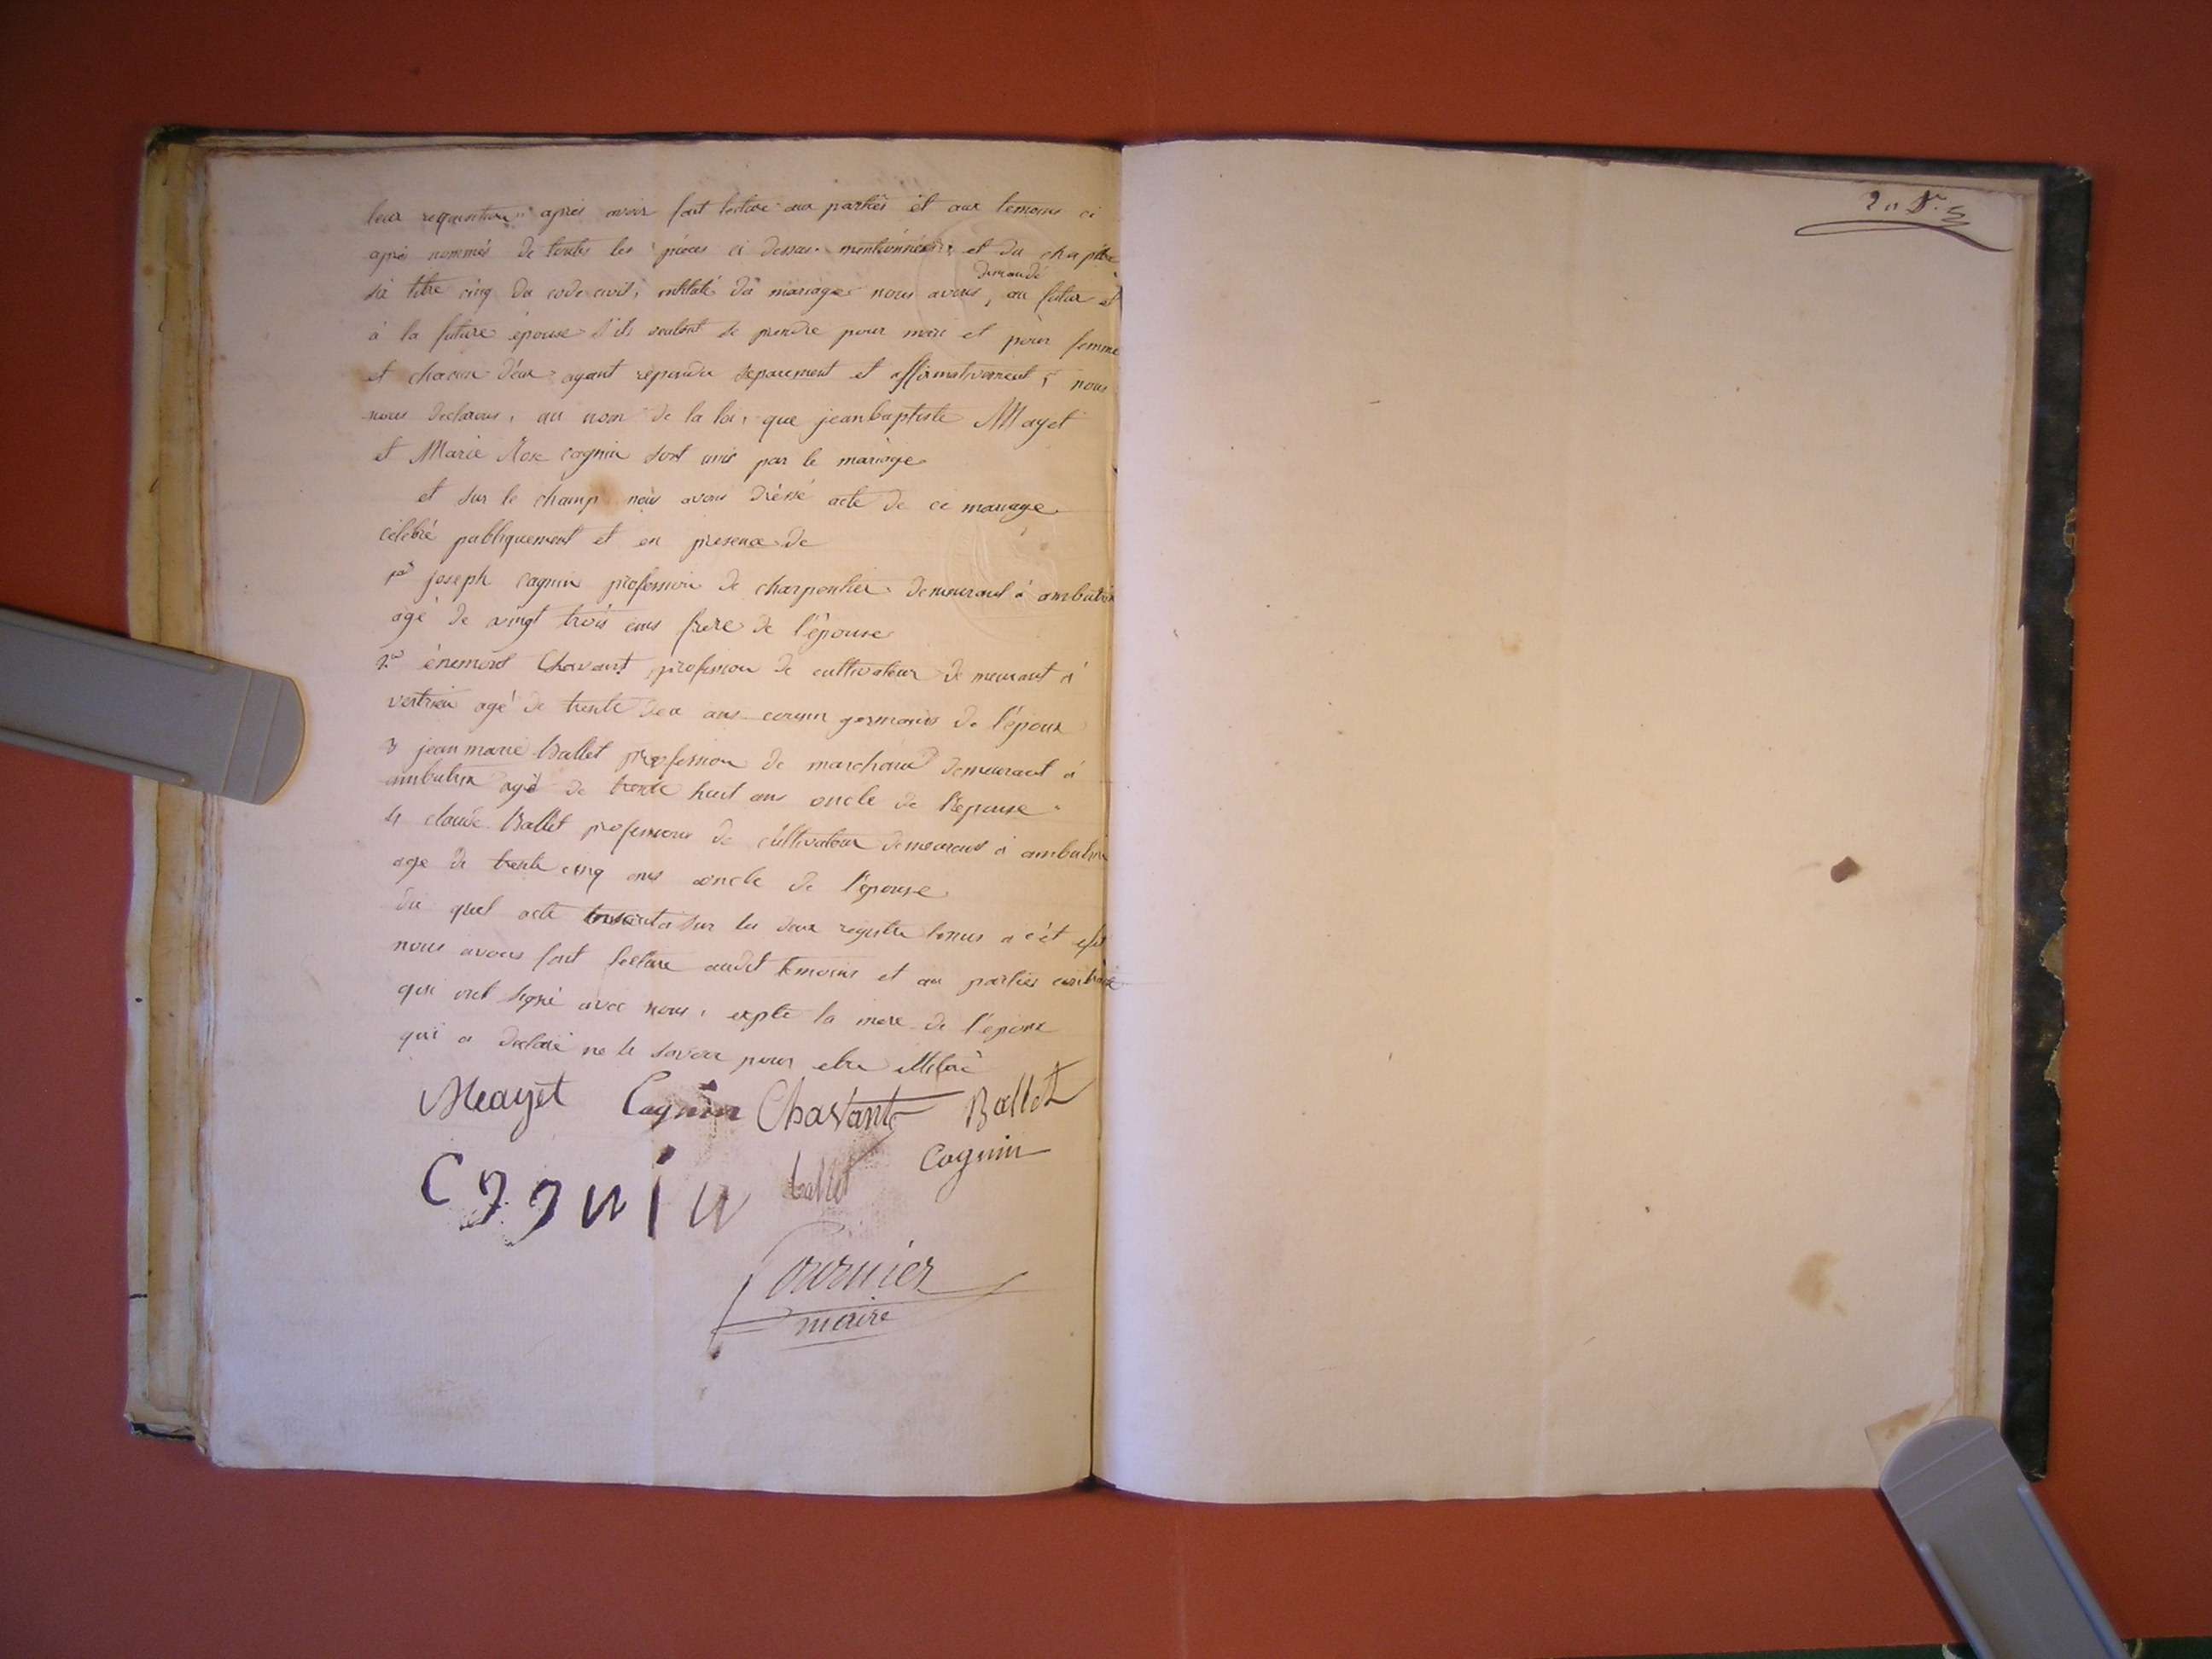 leur requisition apres avoir fait lecture aux parties et aux temoins ci
apres nommés de toutes les pieces ci dessus mentionnées et du chapitre
six titre cinq du code civil, intitulé du mariage nous avons, demandé au futur et
à la future épouse s'ils veulent se prendre pour mari et pour femme
et chacun d'eux ayant repondu separement et affirmativement, nous
nous declarons, au nom de la loi, que jean baptiste Mayet
et Marie Rose cognin sont unis par le mariage
et sur le champ nous avons dréssé acte de ce mariage
célébré publiquement et en presence de
1º joseph cognin profession de charpentier demeurant à ambutrix
agé de vingt trois ans frere de l'épouse
2º Chavant profession de cultivateur demeurant à
vertrieu agé de trente deux ans cousin germains de l'époux
3 jean marie Ballet profession de marchand demeurant à
ambutrix agé de trente huit ans oncle de l'epouse
4 claude Ballet profession de cultivateur demeurant à ambutrix
age de trente cinq ans oncle de l'épouse
du quel acte sur les deux registre tenus a cét éfet
nous avons fait lecture audit temoins et au parties
qui ont signé avec nous, expte la mere de l'époux
qui a declaré ne le savoir pour etre
Meayet Cognin Chavant Ballet
Cognin ballet Cognin
Fournier
maire